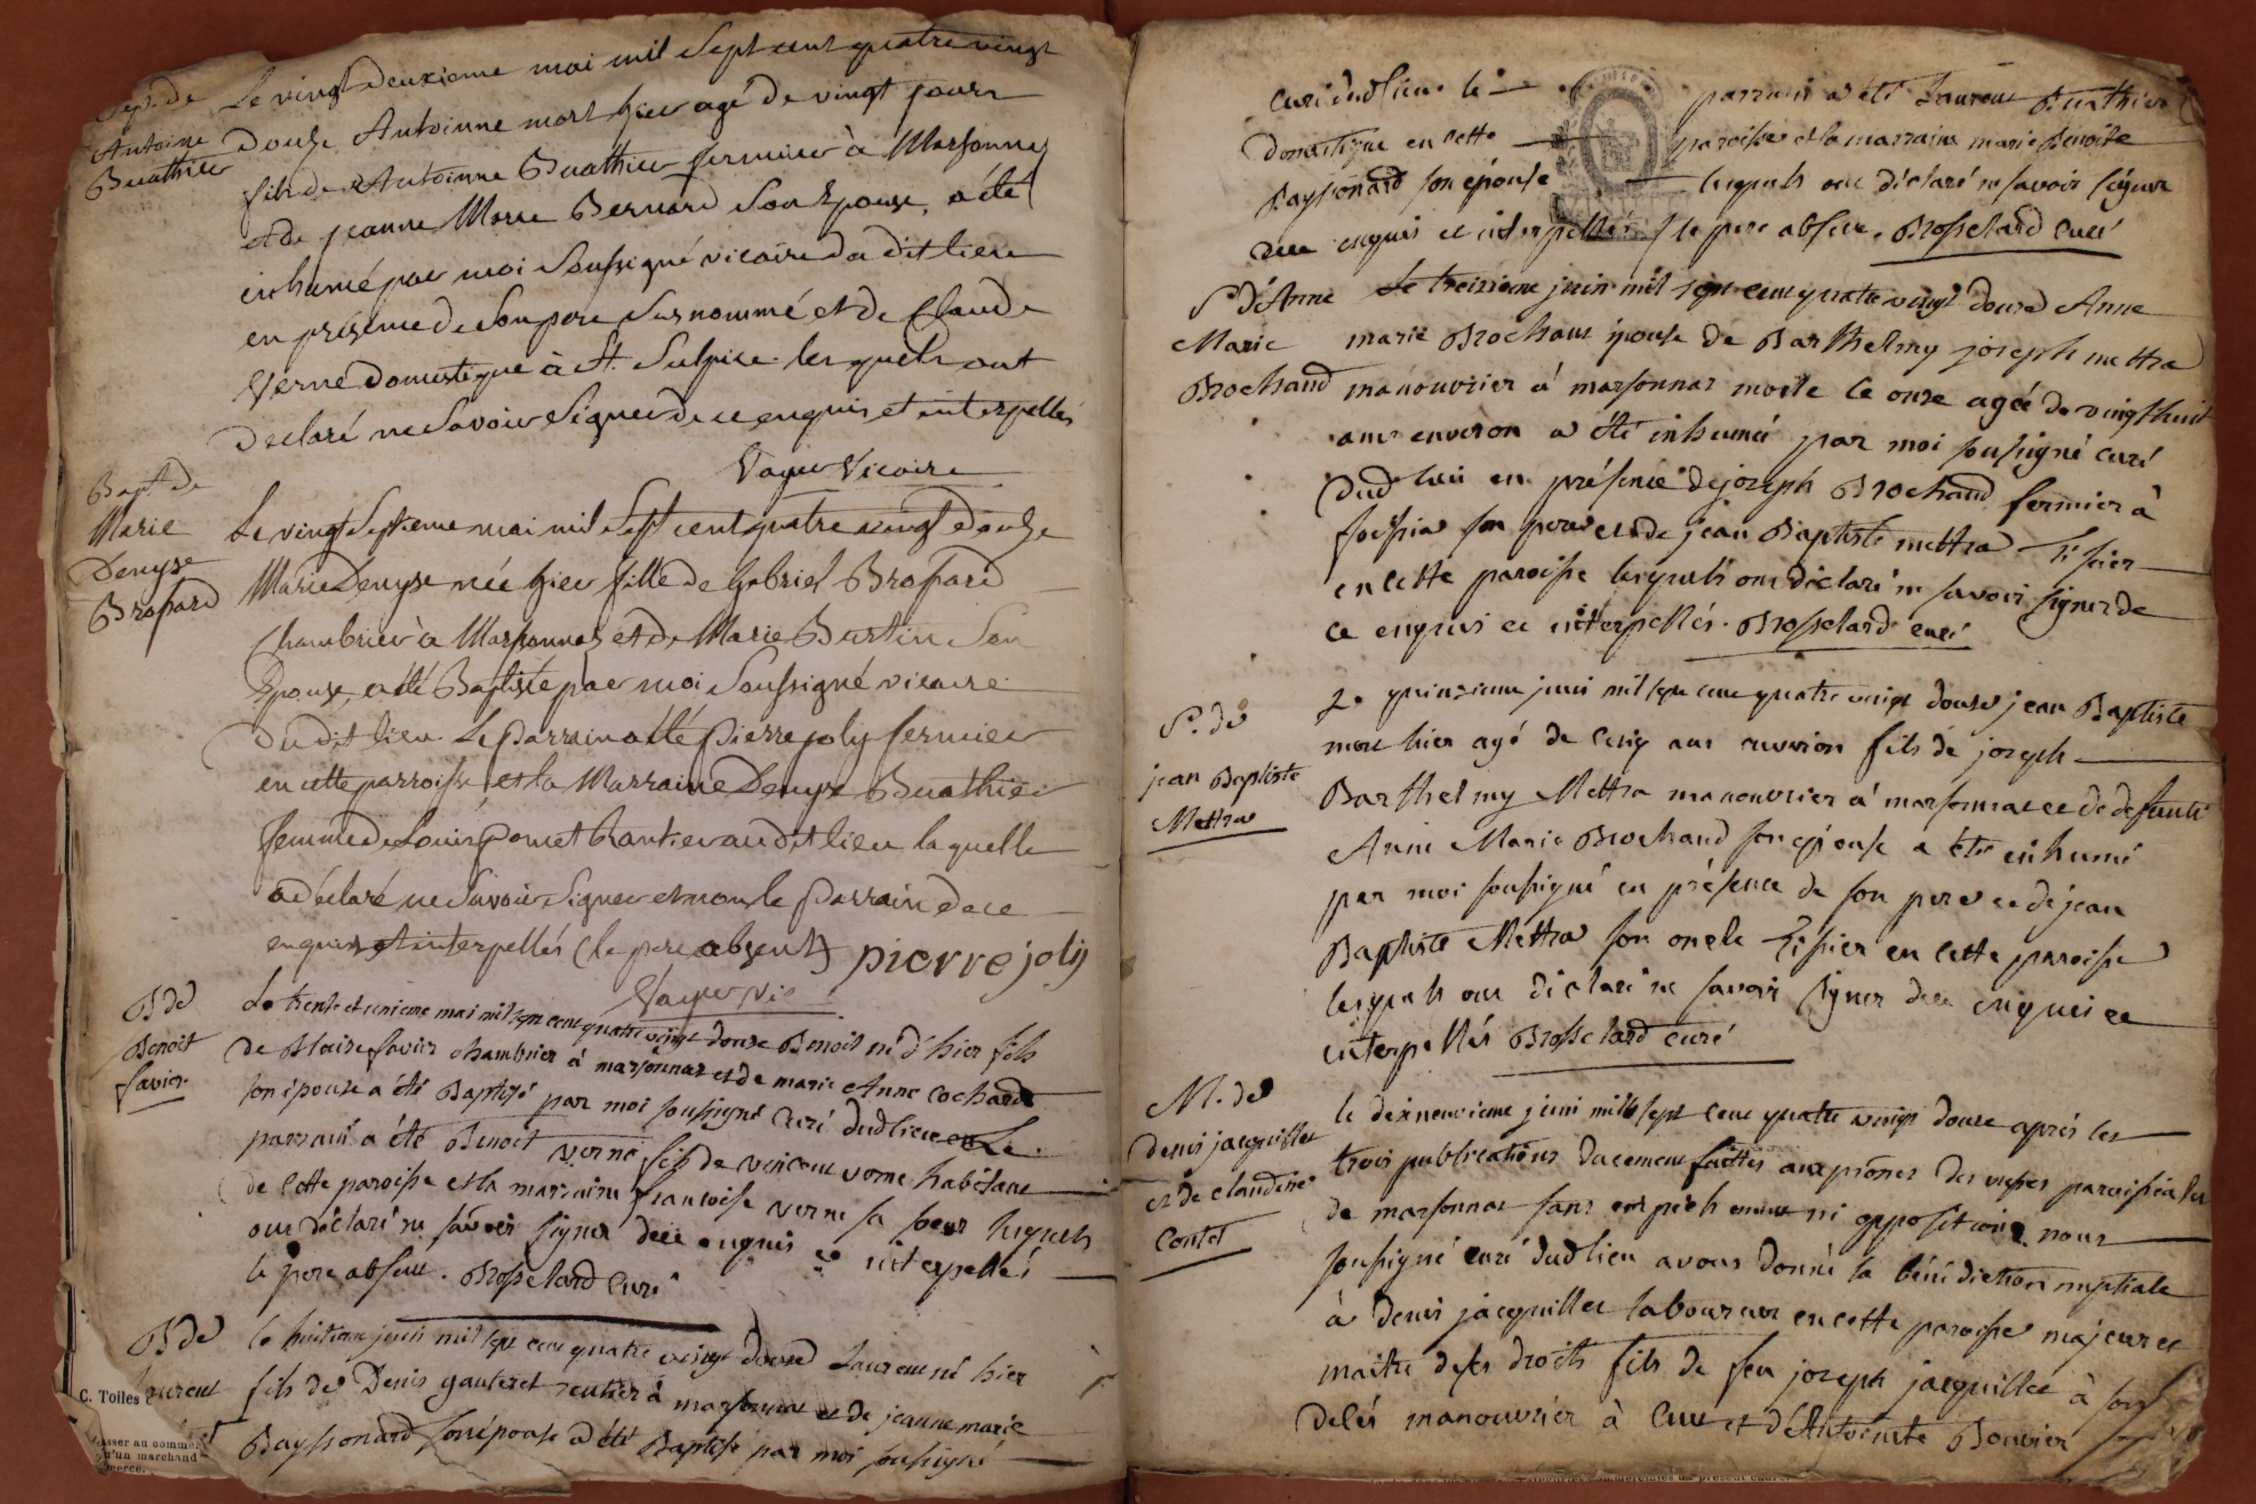 Sep. de
Antoine
Buathier
Le vingt deuxieme mai mil sept cent quatre vingt
Douze Antoinne mort hier agé de vingt jours
fils de Antoinne Buathier fermier à Marsonnas
et de jeanne Marie Bernard Son Epouse, a été
inhumé par moi Soussigné vicaire du dit lieu
en présence de Son pere Surnommé et de Claude
Verne Domestique à St. Sulpice. les quels ont
Declaré ne Savoir Signer de ce enquis et interpellés
Vayer Vicaire
Bapt. de
Marie
Denyse
Brossard
Le vingt Septieme mai mil Sept cent quatre vingt douze
Marie Denyse née hier fille de Gabriel Brossard
Chambrier à Marsonnas et de Marie Burtin Son
Epouse, a été Baptisée par moi Soussigné vicaire
Du dit lieu. Le Parrain a été Pierre joly fermier
en cette parroisse et la Marraine Denyse Buathier
femme de Louis Poncet Grantier au dit lieu laquelle
a déclaré ne Savoir Signer et non le Parrain de ce
enquis et interpellés (le pere absent) pierre joly
Vayer vic
B de
Benoit
favier
Le trente et unieme mai mil sept cent quatre vingt douze Benoit né d'hier fils
de Blaise favier chambrier à marsonnas et de marie Anne Cochard
son épouse a été Baptisé par moi soussigné Curé dud lieu Le
parrain a été Benoit verne fils de vincent verne habitant
de cette paroisse et la marraine francoise verne sa soeur lesquels
ont déclaré ne savoir signer de ce enquis et interpellés
le pere absent. Brosselard Curé
B de
Laurent
le huitieme juin mil sept cent quatre vingt douze Laurent né hier
fils de Denis gauteret rentier à marsonnas et de jeanne marie
Bayssonard son épouse a été Baptisé par moi soussigné
C. Toiles
asser au comme
qu'un marchand
merce.
Curé dud lieu le parrain a été Laurent Buathier
Domestique en cette paroisse et la marraine marie Benoite
Bayssonard son épouse lesquels ont déclaré ne savoir signer
de ce enquis et interpellés / le pere absent. Brosselard Curé
S d'Anne
Marie
Brochand
Le treizieme juin mil sept cent quatre vingt douze Anne
marie Brochant épouse de Barthelmy joseph mettra
manouvrier à marsonnas morte le onze agée de vingt huit
ans environ a été inhumée par moi soussigné curé
dud lieu en présence de joseph Brochand fermier à
foissia son pere et de jean Baptiste mettra tissier
en cette paroisse lesquels ont déclaré ne savoir signer de
ce enquis et interpellés. Brosselard curé
S. de
jean Baptiste
Mettra
Le quinzieme juin mil sept cent quatre vingt douze jean Baptiste
mort hier agé de Cinq ans environ fils de joseph
Barthelmy Mettra manouvrier à marsonnas et de defunte
Anne Marie Brochand son épouse a été inhumé
par moi soussigné en présence de son pere et de jean
Baptiste Mettra son oncle tissier en cette paroisse
lesquels ont déclaré ne savoir signer de ce enquis et
interpellés Brosselard curé
M. de
Denis jacquillet
et de claudine
Contet
le dixneuvieme juin mil sept cent quatre vingt douze après les
trois publications duement faittes aux prônes des messes paroissiales
de marsonnas sans empechement ni opposition nous
soussigné curé dud lieu avons donné la bénédiction nuptiale
à Denis jacquillet laboureur en cette paroisse majeur et
maitre de ses droits fils de feu joseph jacquillet à son
delés manouvrier à Cuet et d'Antoinette Bouvier